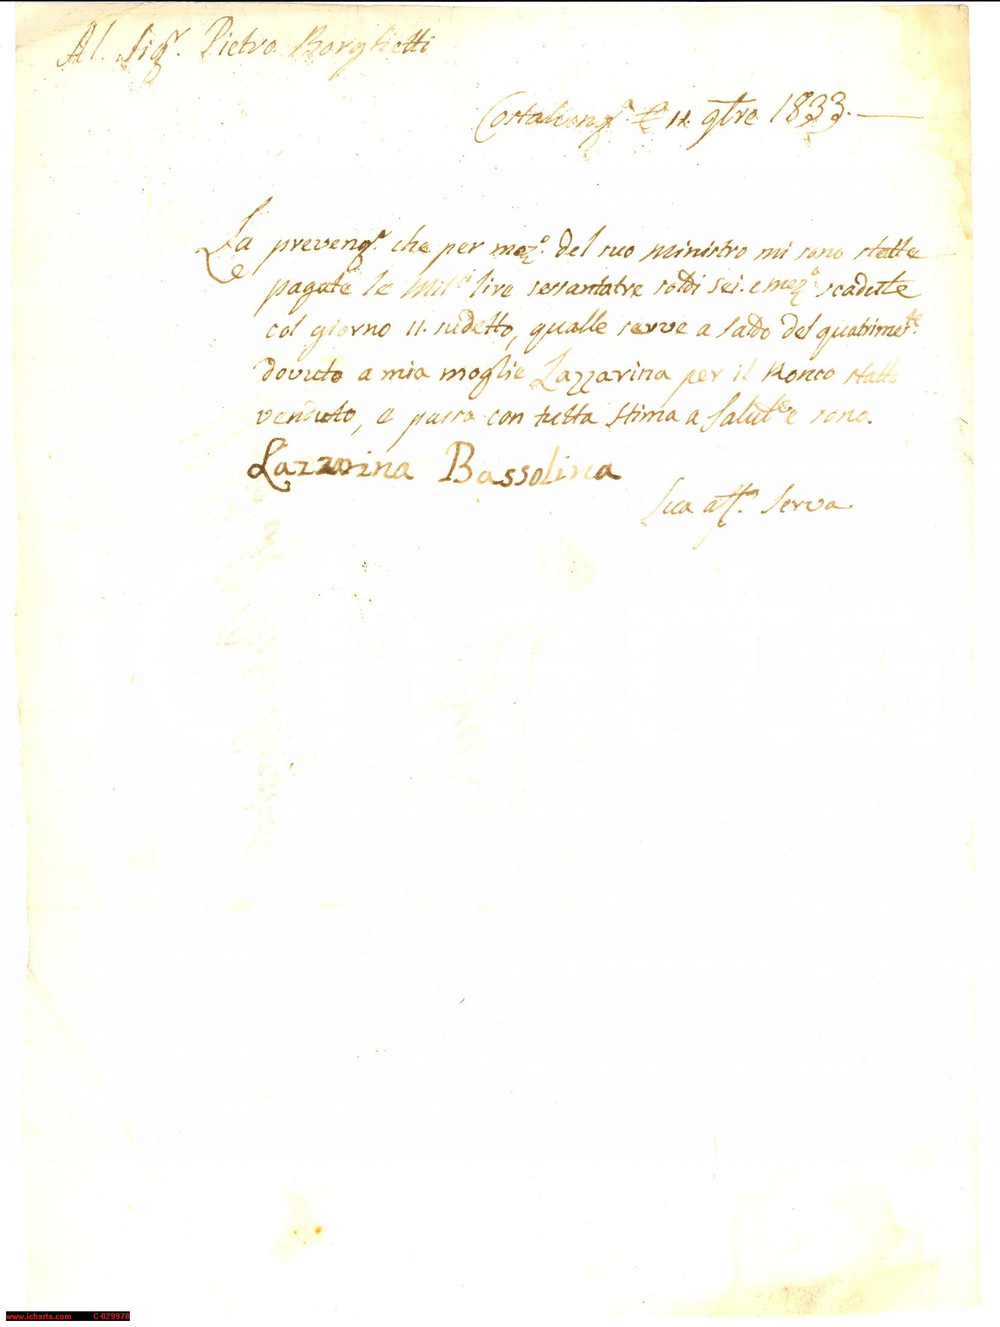 Al. Sigr. Pietro Borghetti
9bre 1833.
La prevengo. che per mezo. del suo Ministro mi sono statte
pagate le Mile. lire sessantatre soldi sei. e mezo. scadutte
col giorno 11. sudetto, qualle serve a saldo del quatrimestre.
dovuto a mia moglie Lazzarina per il Ronco statto
venduto, e passo con tutta stima a Salutle e sono.
Lazzarina Bassolina
Sua affma. Serva
www.icharta.com C-029978